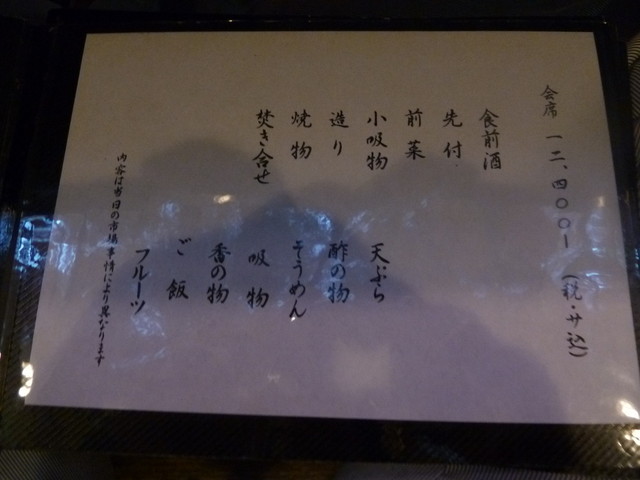 会席 一二、四〇〇ー (税・サ込)
食前酒
先付
前菜
小吸物
造り
焼物
焚き合せ
天ぷら
酢の物
そうめん
吸物
香の物
ご飯
フルーツ
内容は当日の市場事情により異なります